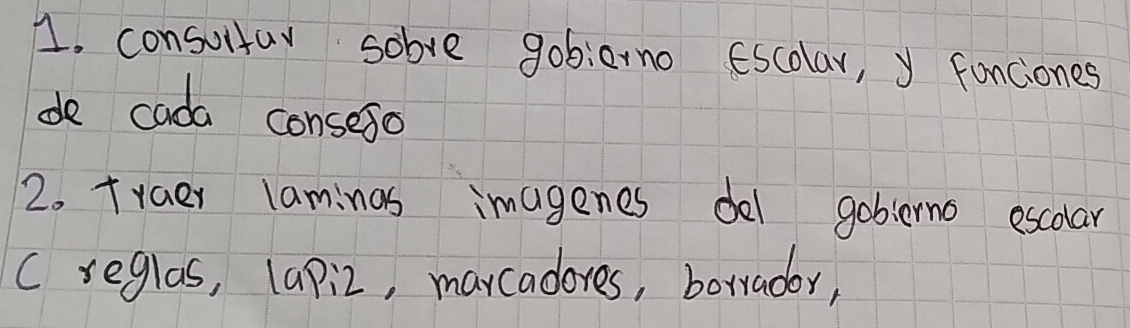 1. consultar sobre gobierno Escolar, y funciones
de cada consejo
2. traer laminas imagenes del gobierno escolar
( reglas, lapiz, marcadores, borrador,